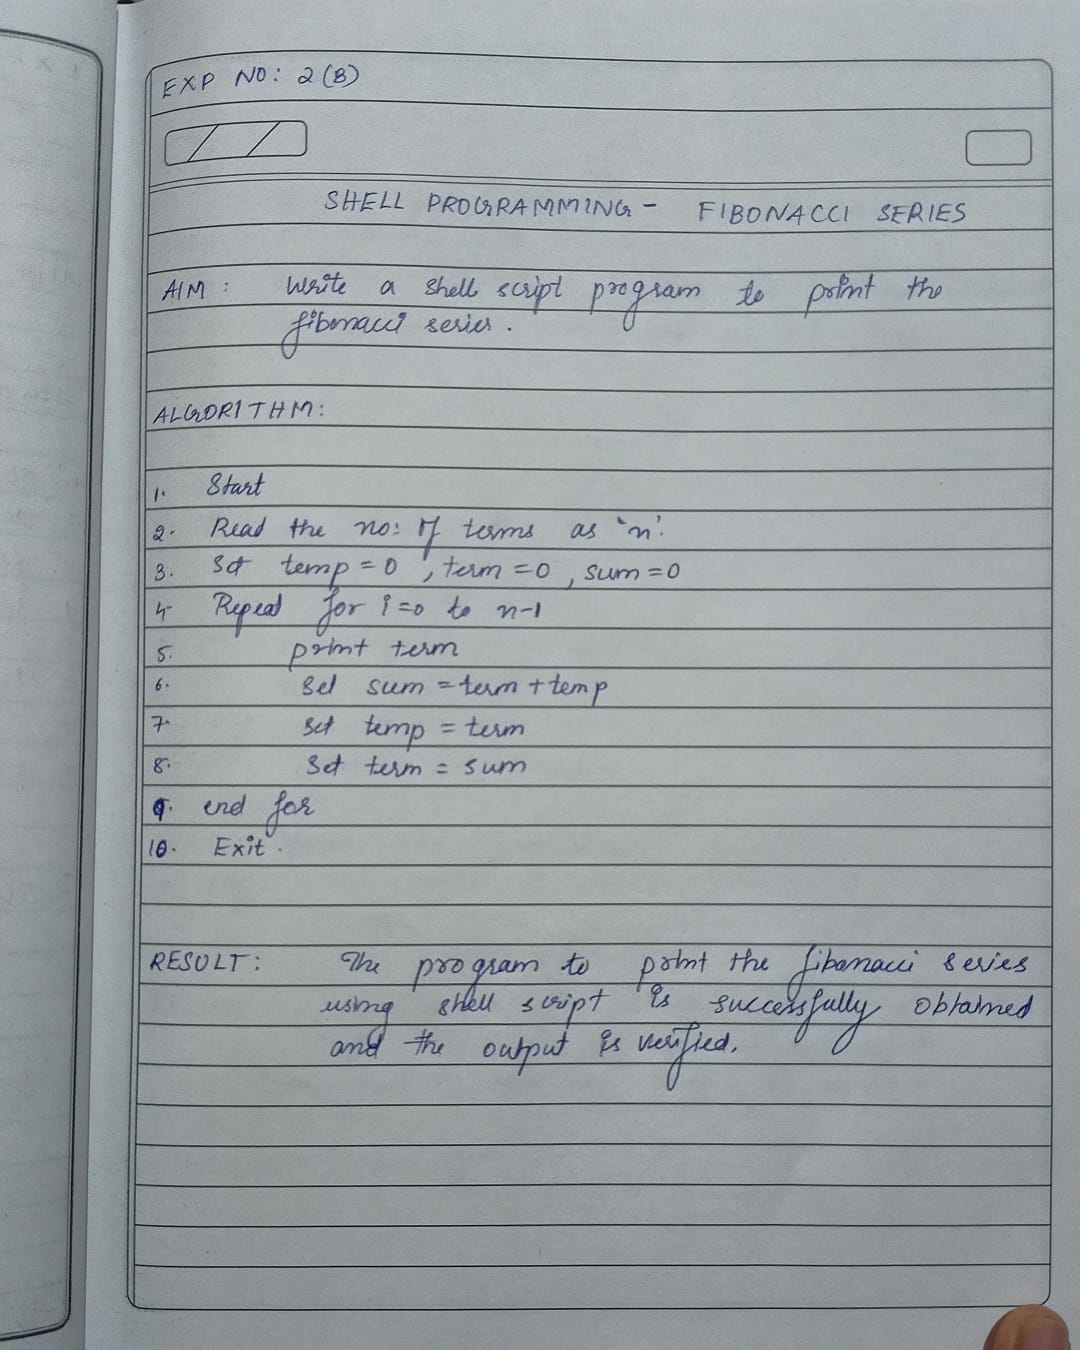 EXP NO: 2(B)
SHELL PROGRAMMING - FIBONACCI SERIES
AIM : Write a shell script program to print the
fibonacci series .
ALGORITHM:
1. Start
2. Read the no: of terms as 'n'.
3. Set temp = 0 , term = 0 , sum = 0
4. Repeat for i = 0 to n-1
5. print term
6. Set sum = term + temp
7. Set temp = term
8. Set term = sum
9. end for
10. Exit .
RESULT : The program to print the fibonacci series
using shell script is successfully obtained
and the output is verified.